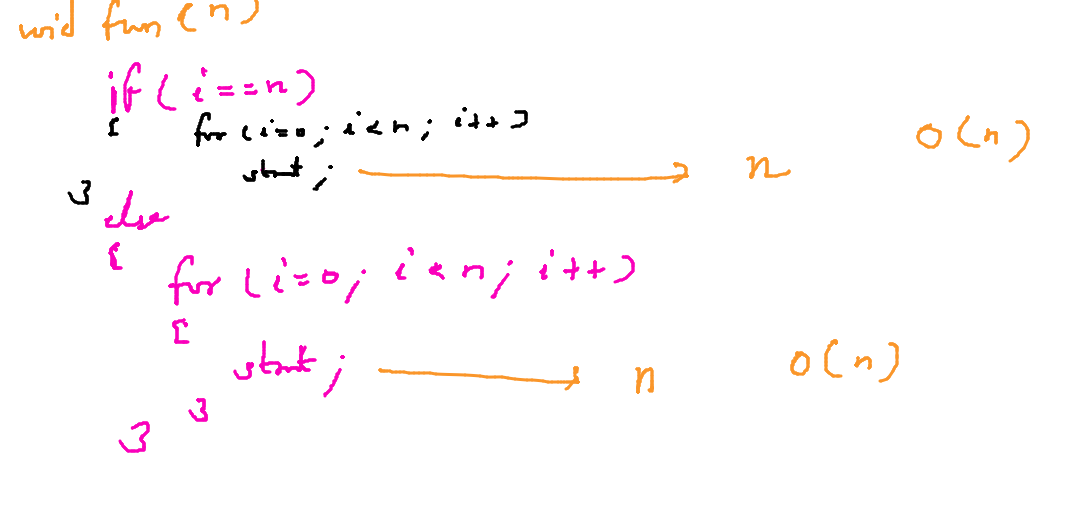 void fun (n)
if ( i == n )
{ for ( i=0 ; i < n ; i++ )
stmt ; n O(n)
} else
{
for ( i=0 ; i < n ; i++ )
{
stmt ; n O(n)
}
}